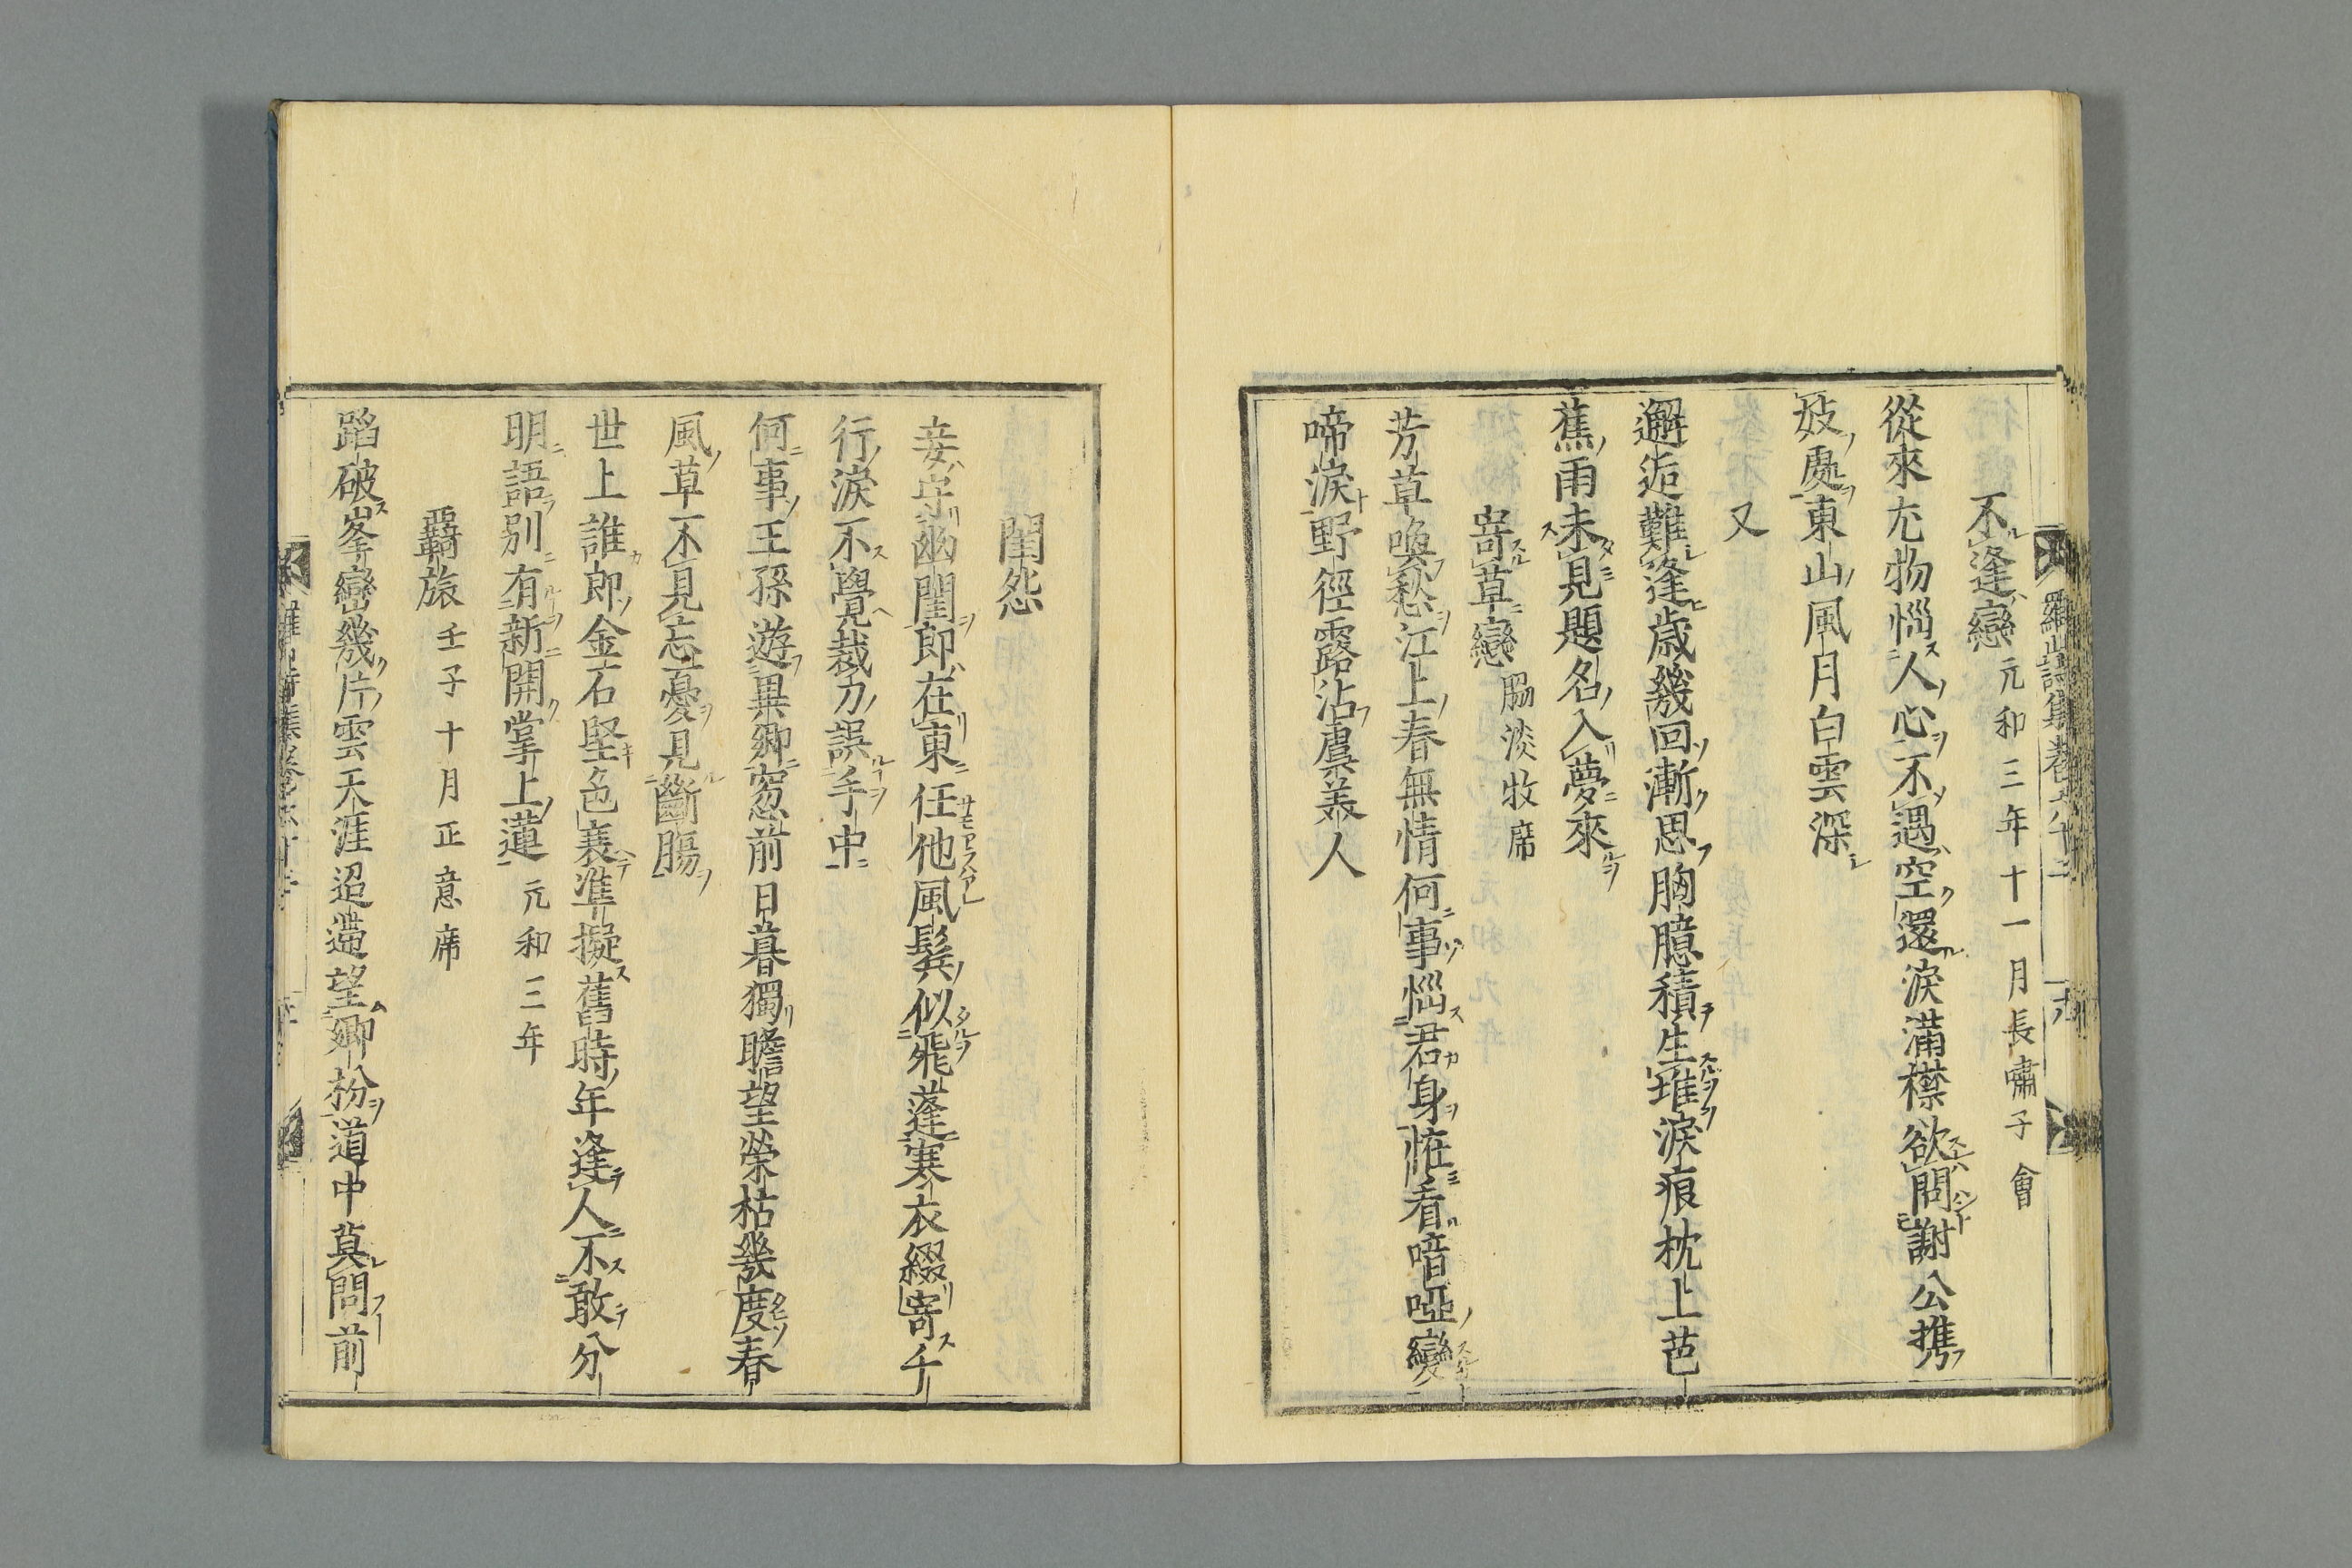 羅山詩集卷六十二
十九
不逢戀 元和三年十一月長嘯子會
從來尤物惱人心不遇空還淚滿襟欲問謝公携
妓處東山風月白雲深
又
邂逅難逢歲幾回漸思胸臆積生堆淚痕枕上芭
蕉雨未見題名入夢來
寄草戀 脇淡牧席
芳草喚愁江上春無情何事惱君身恠看喑啞變
啼淚野徑露沾虞美人
閨怨
妾守幽閨郎在東任他風鬂似飛蓬寒衣綴寄千
行淚不覺裁刀誤手中
何事王孫遊異鄉窓前日暮獨瞻望榮枯幾度春
風草不見忘憂見斷腸
世上誰郎金石堅色衰準擬舊時年逢人不敢分
明語別有新開掌上蓮 元和三年
覊旅 壬子十月正意席
蹈破峯巒幾片雲天涯迢遞望鄉枌道中莫問前